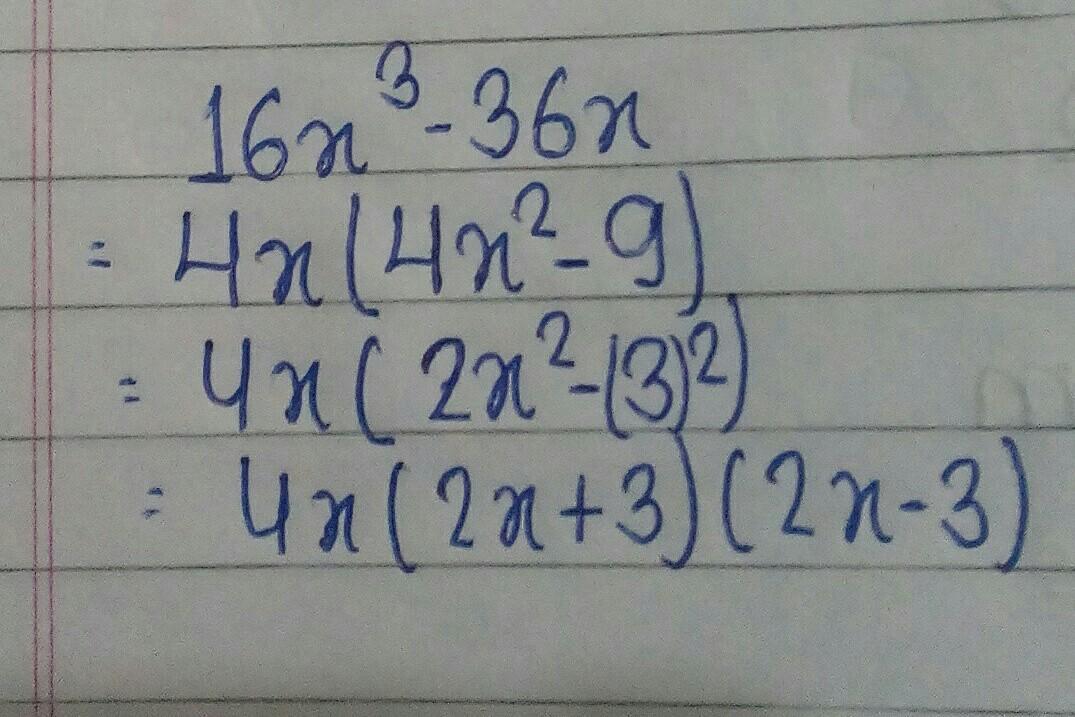 16x³-36x
= 4x(4x²-9)
= 4x(2x²-(3)²)
= 4x(2x+3)(2x-3)